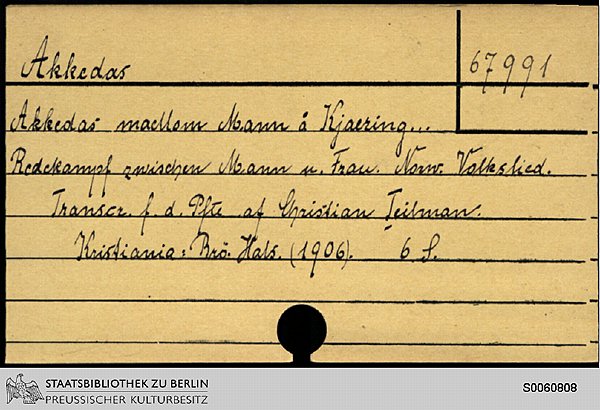 Akkedas
67991
Akkedas maellom Mann å Kjaering...
Redekampf zwischen Mann u. Frau. Norw. Volkslied.
Transcr. f. d. Pfte af Christian Teilman.
Kristiania: Brö. Hals. (1906). 6 S.
STAATSBIBLIOTHEK ZU BERLIN
PREUSSISCHER KULTURBESITZ
S0060808